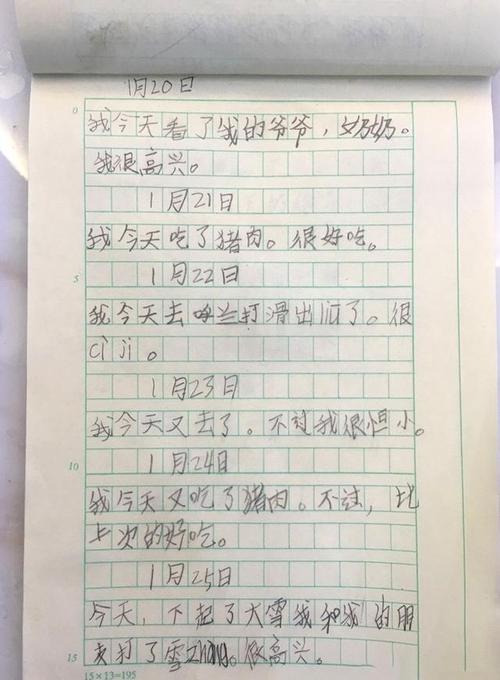 1月20日
0
我今天看了我的爷爷，奶奶。
我很高兴。
1月21日
我今天吃了猪肉。很好吃。
5
1月22日
我今天去呼兰打滑出了。很
cì jī。
1月23日
我今天又去了。不过我很恒小。
10
1月24日
我今天又吃了猪肉。不过，比
上次的好吃。
1月25日
今天，下起了大雪我和我的朋
友打了雪zhàng。很高兴。
15
15×13=195